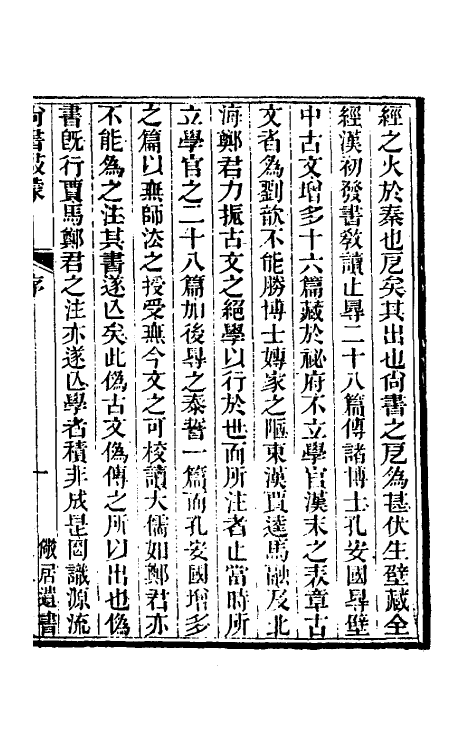 經之火於秦也戹矣其出也尙書之戹為甚伏生壁藏全
經漢初發書敎讀止㝵二十八篇傳諸博士孔安國㝵壁
中古文增多十六篇藏於祕府不立學官漢末之表章古
文者為劉歆不能勝博士嫥家之陋東漢賈逵馬融及北
海鄭君力振古文之絕學以行於世而所注者止當時所
立學官之二十八篇加後㝵之泰誓一篇而孔安國增多
之篇以無師法之授受無今文之可校讀大儒如鄭君亦
不能為之注其書遂亾矣此偽古文偽傳之所以出也偽
書旣行賈馬鄭君之注亦遂亾學者積非成是罔識源流
尙書啟蒙 序 一 儆居遺書